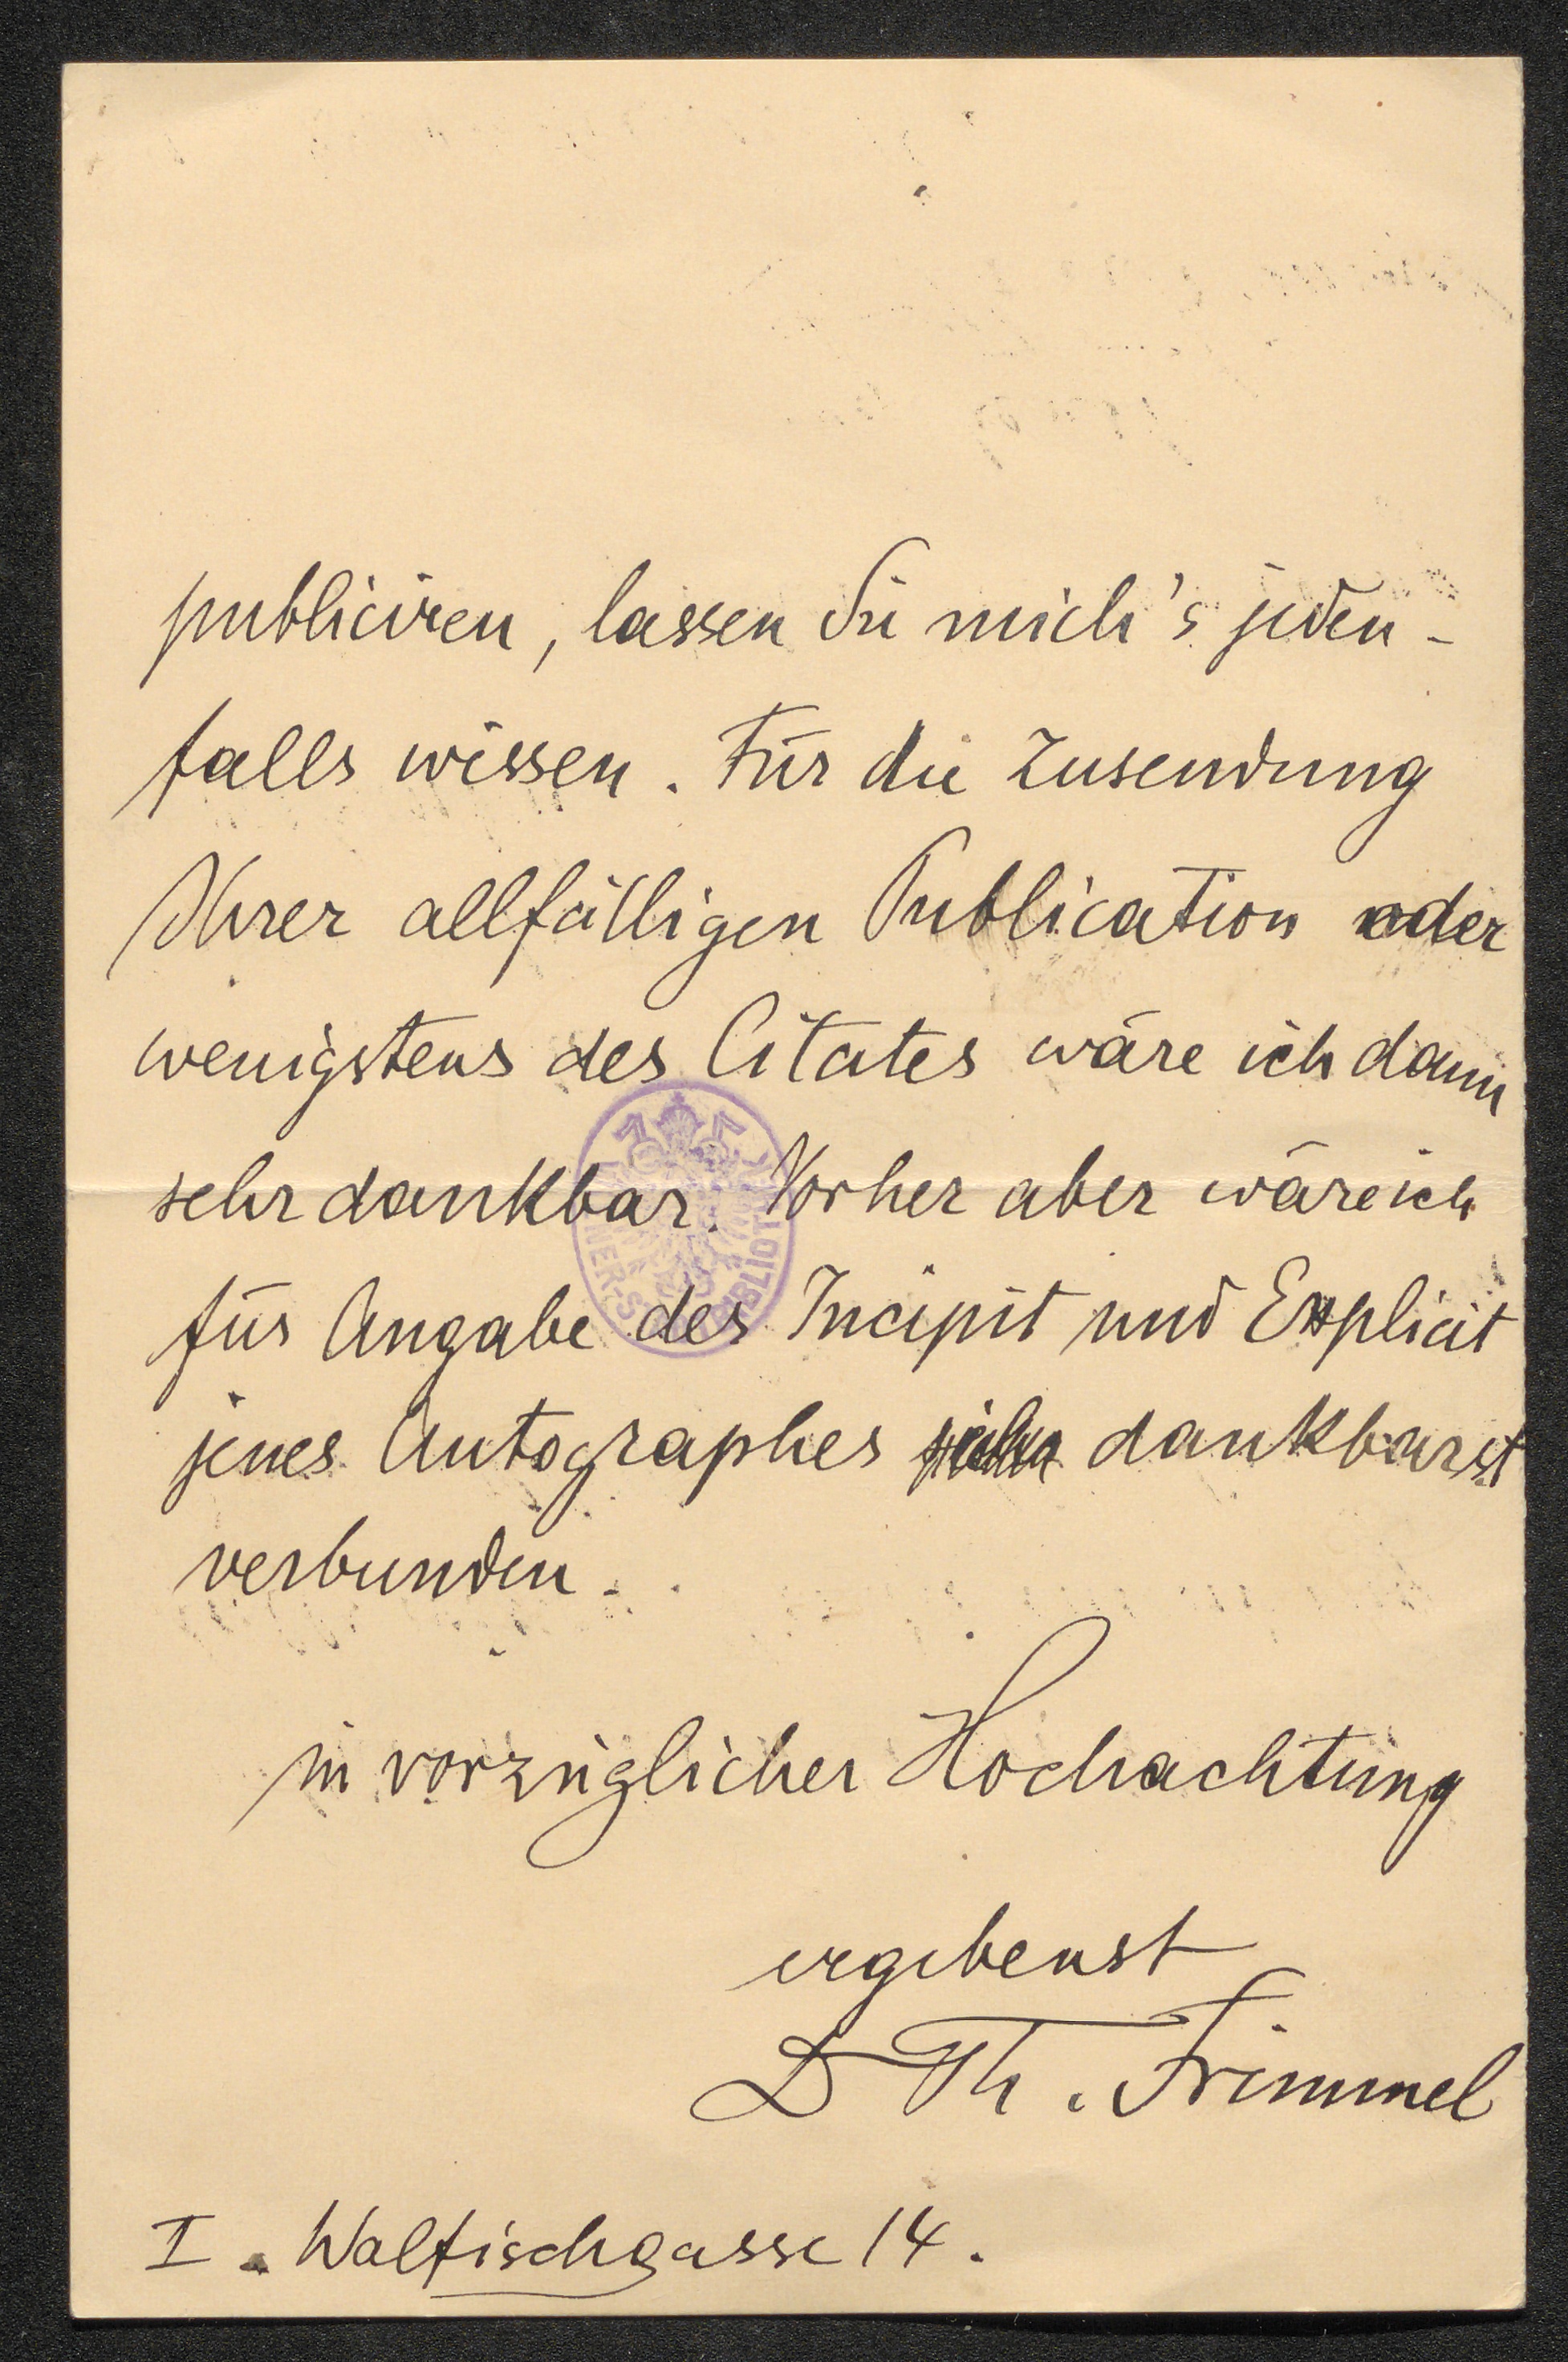 publiciren, lassen Sie mich's jeden-
falls wissen. Für die Zusendung
Ihrer allfälligen Publication oder
wenigstens des Citates wäre ich dann
sehr dankbar. Vorher aber wäre ich
für Angabe des Incipit und Explicit
jenes Autographes dankbarst
verbunden.
in vorzüglicher Hochachtung
ergebenst
D Th. Frimmel
I. Walfischgasse 14.